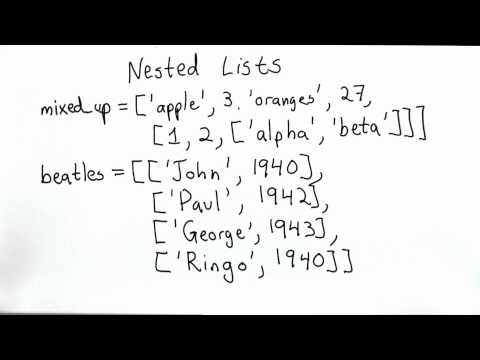 Nested Lists
mixed_up = ['apple', 3. 'oranges', 27,
[1, 2, ['alpha', 'beta']]]
beatles = [['John', 1940],
['Paul', 1942],
['George', 1943],
['Ringo', 1940]]